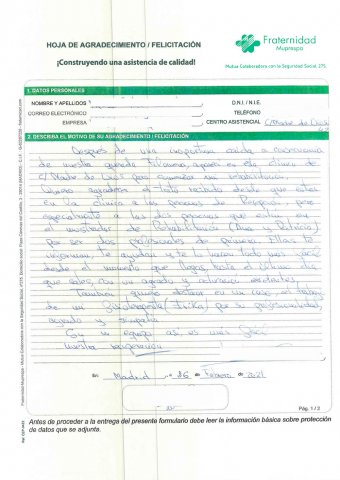 HOJA DE AGRADECIMIENTO / FELICITACIÓN
¡Construyendo una asistencia de calidad!
Fraternidad
Muprespa
Mutua Colaboradora con la Seguridad Social, 275
1. DATOS PERSONALES
NOMBRE Y APELLIDOS
D.N.I. / N.I.E.
CORREO ELECTRÓNICO
TELÉFONO
EMPRESA
CENTRO ASISTENCIAL C/Madre de Dios
2. DESCRIBA EL MOTIVO DE SU AGRADECIMIENTO / FELICITACIÓN
Después de una inoportuna caída a consecuencia
de nuestra querida Filomena, aparecí en la clínica de
C/ Madre de Dios para comenzar mi rehabilitación.
Quiero agradecer el trato recibido desde que entras
en la clínica a las personas de Recepción, pero
especialmente a las dos personas que están en
el mostrador de Rehabilitación (Ana y Patricia)
por ser dos profesionales de primera. Ellas te
informan, te ayudan y te lo hacen todo más fácil
desde el momento que llegas, hasta el último día
que sales, con un agrado y
También quiero destacar en mi caso, el trabajo
de mi fisioterapeuta por su profesionalidad,
agrado y simpatía
Con mi equipo así, es más fácil
nuestra recuperación
En Madrid a 26 Febrero de 2021
Pág. 1 / 2
Antes de proceder a la entrega del presente formulario debe leer la información básica sobre protección
de datos que se adjunta.